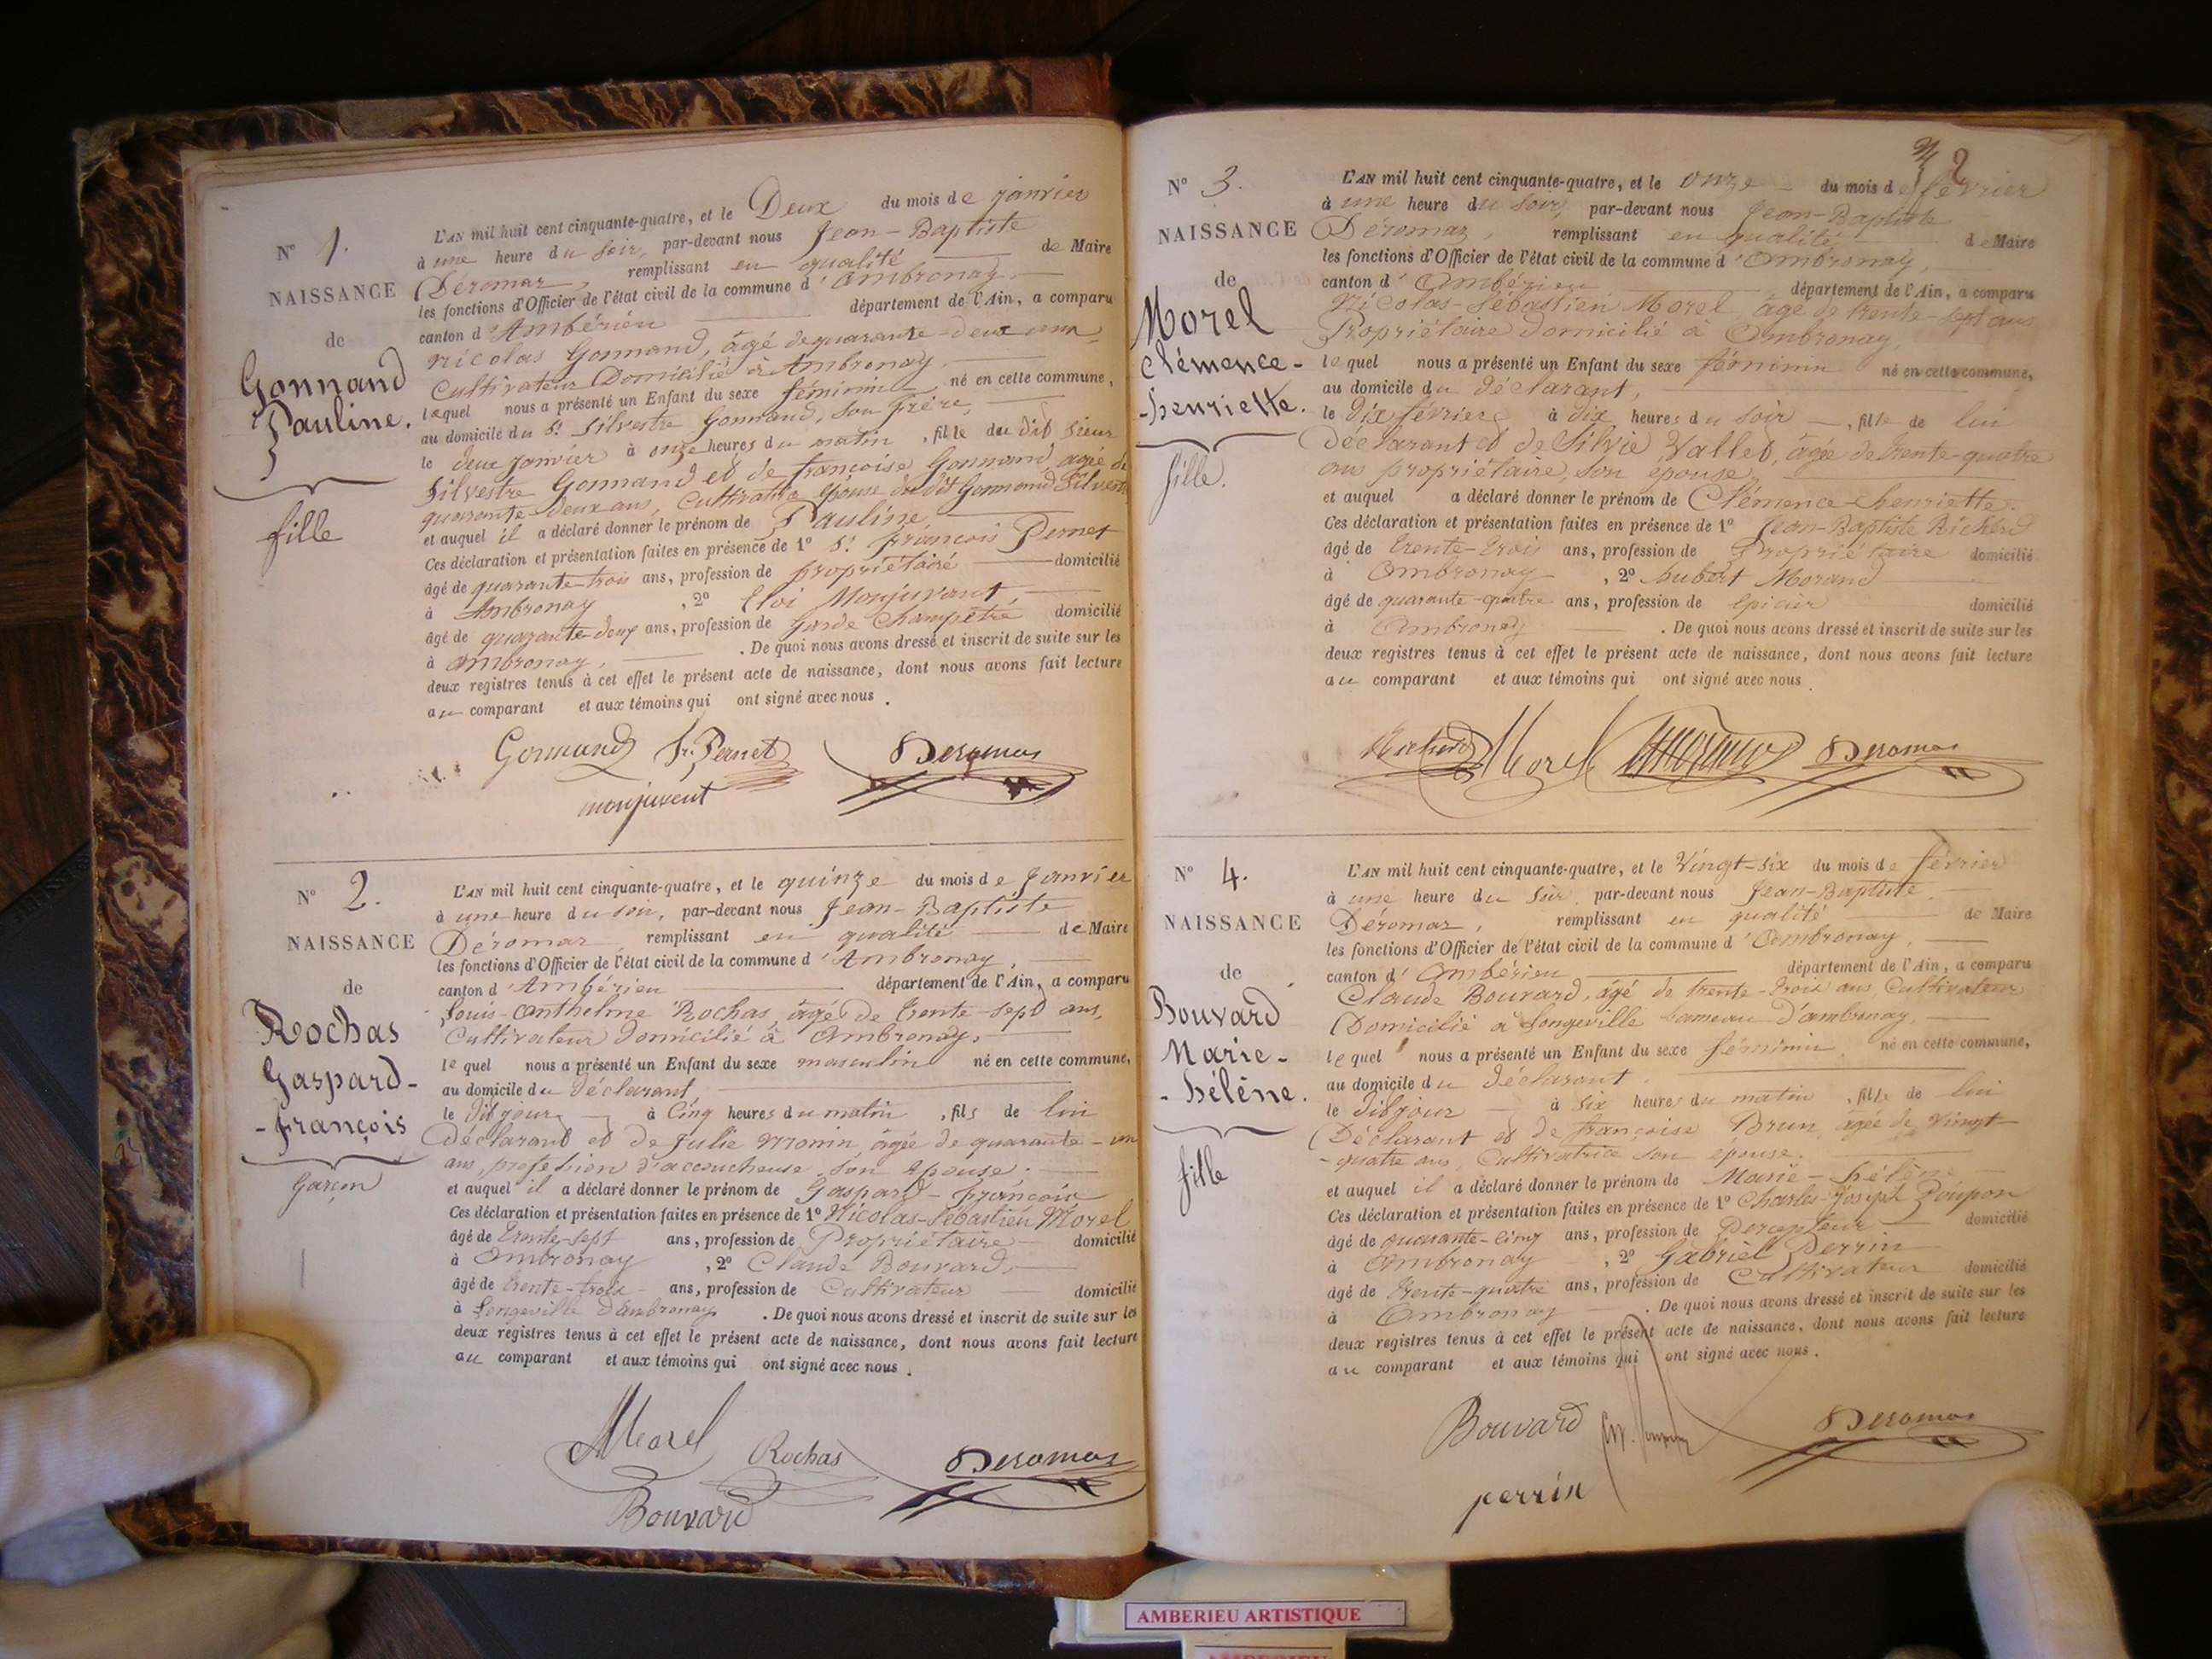 N° 1.
NAISSANCE
de
Gonnand
Pauline.
fille
L'AN mil huit cent cinquante-quatre, et le Deux du mois de janvier
à une heure du soir, par-devant nous Jean-Baptiste
Déromas, remplissant en qualité de Maire
les fonctions d'Officier de l'état civil de la commune d'Ambronay,
canton d'Ambérieu département de l'Ain, a comparu
Nicolas Gonnand, âgé de quarante-deux ans,
Cultivateur Domicilié à Ambronay,
lequel nous a présenté un Enfant du sexe féminin né en cette commune,
au domicile du Sr Silvestre Gonnand, son frère,
le deux Janvier à onze heures du matin, fille du dit sieur
Silvestre Gonnand et de françoise Gonnand, agée de
quarante-deux ans, cultivatrice épouse du dit Gonnand Silvestre
et auquel il a déclaré donner le prénom de Pauline,
Ces déclaration et présentation faites en présence de 1° Sr françois Pernet
âgé de quarante-trois ans, profession de propriétaire domicilié
à Ambronay, 2° Eloi Monjuvant,
âgé de quarante-deux ans, profession de Garde Champêtre domicilié
à ambronay, . De quoi nous avons dressé et inscrit de suite sur les
deux registres tenus à cet effet le présent acte de naissance, dont nous avons fait lecture
au comparant et aux témoins qui ont signé avec nous.
Gonnand fr. Pernet Deromas
monjuvent
N° 2.
NAISSANCE
de
Rochas
Gaspard-
-françois
Garçon
L'AN mil huit cent cinquante-quatre, et le quinze du mois de Janvier
à une heure du soir, par-devant nous Jean-Baptiste
Déromas, remplissant en qualité de Maire
les fonctions d'Officier de l'état civil de la commune d'Ambronay,
canton d'Ambérieu département de l'Ain, a comparu
Louis-Anthelme Rochas, âgé de trente-sept ans,
Cultivateur domicilié à Ambronay,
lequel nous a présenté un Enfant du sexe masculin né en cette commune,
au domicile du déclarant,
le dit jour à Cinq heures du matin, fils de lui
déclarant et de Julie Monin, âgée de quarante-un
ans, profession d'accoucheuse, son épouse.
et auquel il a déclaré donner le prénom de Gaspard-françois
Ces déclaration et présentation faites en présence de 1° Nicolas-Sébastien Morel
âgé de trente-sept ans, profession de Propriétaire domicilié
à Ambronay, 2° Claude Bouvard,
âgé de trente-trois ans, profession de Cultivateur domicilié
à Longeville d'ambronay. De quoi nous avons dressé et inscrit de suite sur les
deux registres tenus à cet effet le présent acte de naissance, dont nous avons fait lecture
au comparant et aux témoins qui ont signé avec nous.
Morel Rochas Deromas
Bouvard
2
N° 3.
NAISSANCE
de
Morel
Clémence-
-henriette.
fille.
L'AN mil huit cent cinquante-quatre, et le onze du mois de février
à une heure du soir, par-devant nous Jean-Baptiste
Déromas, remplissant en qualité de Maire
les fonctions d'Officier de l'état civil de la commune d'Ambronay,
canton d'Ambérieu département de l'Ain, a comparu
Nicolas-Sébastien Morel, âgé de trente-sept ans
Propriétaire domicilié à Ambronay,
lequel nous a présenté un Enfant du sexe féminin né en cette commune,
au domicile du déclarant,
le dix février à dix heures du soir, fille de lui
déclarant et de Silvie Vallet, âgée de trente-quatre
ans propriétaire, son épouse,
et auquel a déclaré donner le prénom de Clémence-henriette.
Ces déclaration et présentation faites en présence de 1° Jean-Baptiste Richerd
âgé de trente-trois ans, profession de Propriétaire domicilié
à Ambronay, 2° hubert Morand
âgé de quarante-quatre ans, profession de Epicier domicilié
à Ambronay. De quoi nous avons dressé et inscrit de suite sur les
deux registres tenus à cet effet le présent acte de naissance, dont nous avons fait lecture
au comparant et aux témoins qui ont signé avec nous.
Richerd Morel Deromas
N° 4.
NAISSANCE
de
Bouvard
Marie-
-hélène.
fille
L'AN mil huit cent cinquante-quatre, et le Vingt-six du mois de février
à une heure du soir, par-devant nous Jean-Baptiste
Déromas, remplissant en qualité de Maire
les fonctions d'Officier de l'état civil de la commune d'Ambronay,
canton d'Ambérieu département de l'Ain, a comparu
Claude Bouvard, âgé de trente-trois ans, Cultivateur
Domicilié à Longeville hameau d'ambronay,
lequel nous a présenté un Enfant du sexe féminin né en cette commune,
au domicile du déclarant,
le dit jour à six heures du matin, fille de lui
Déclarant et de françoise Brun, âgée de vingt-
-quatre ans, Cultivatrice son épouse.
et auquel il a déclaré donner le prénom de Marie-hélène
Ces déclaration et présentation faites en présence de 1° Charles-Joseph Poupon
âgé de quarante-cinq ans, profession de Percepteur domicilié
à Ambronay, 2° Gabriel Perrin
âgé de trente-quatre ans, profession de Cultivateur domicilié
à Ambronay. De quoi nous avons dressé et inscrit de suite sur les
deux registres tenus à cet effet le présent acte de naissance, dont nous avons fait lecture
au comparant et aux témoins qui ont signé avec nous.
Bouvard Deromas
perrin
AMBERIEU ARTISTIQUE